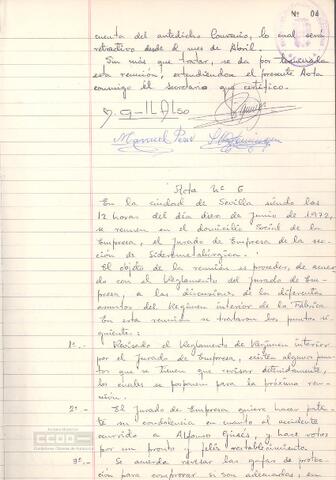 Nº 04
cuenta del antedicho Convenio, lo cual será
retractivo desde el mes de Abril.
Sin más que tratar, se da por terminada
esta reunión, extendiendose el presente Acta
conmigo el secretario que certifico.
Manuel
Acta Nº 6
En la ciudad de Sevilla siendo las
12 horas del día dies de Junio de 1972,
se reunen en el domicilio Social de la
Empresa, el Jurado de Empresa de la sec-
ción de Siderometalúrgica.
El objeto de la reunión es proceder, de acuer
do con el Reglamento del Jurado de Em-
presa, a las discusiones de los diferentes
asuntos del Régimen interior de la Fábrica.
En esta reunión se trataron los puntos si-
guiente:
1º.- Revisado el Reglamento de Régimen interior
por el Jurado de Empresa, existen algunos pun-
tos que se tienen que revisar detenidamente,
los cuales se posponen para la próxima reu-
nión.
2º.- El Jurado de Empresa quiere hacer paten-
te su condolencia en cuanto al accidente
ocurrido a Alfonso y hace votos
por un pronto y feliz restablecimiento.
3º.- Se acuerda revisar las gafas de protec-
ción para comprobar si son adecuadas, en
CCOO